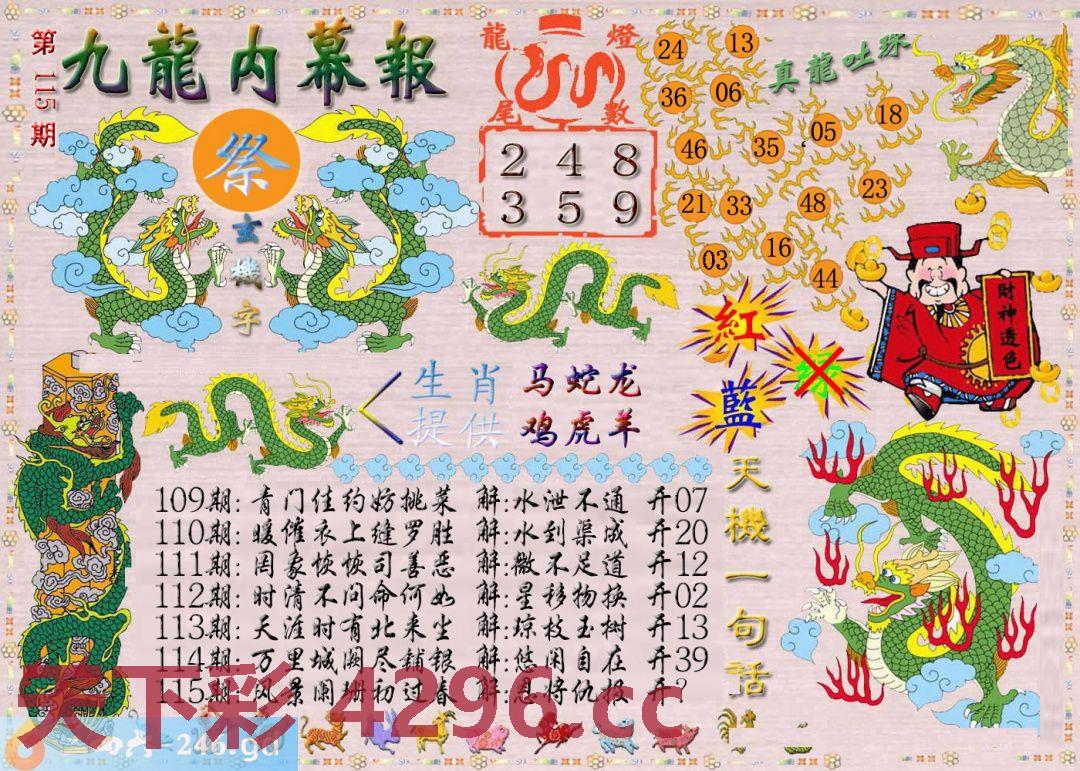 第115期
九龍内幕報
祭
玄機字
龍燈
尾數
2 4 8
3 5 9
真龍吐珠
24 13
36 06
46 35 05 18
21 33 48 23
03 16 44
紅
綠
藍
財神透色
生肖提供
马蛇龙
鸡虎羊
109期:青门佳约妨挑菜 解:水泄不通 开07
110期:暖催衣上缝罗胜 解:水到渠成 开20
111期:罔象恢恢司善恶 解:微不足道 开12
112期:时清不问命何如 解:星移物换 开02
113期:天涯时有北来尘 解:琼枝玉树 开13
114期:万里城阙尽铺银 解:悠闲自在 开39
115期:风景阑珊初过春 解:恩将仇报 开?
天機一句話
天下彩 4296.cc
246.gd